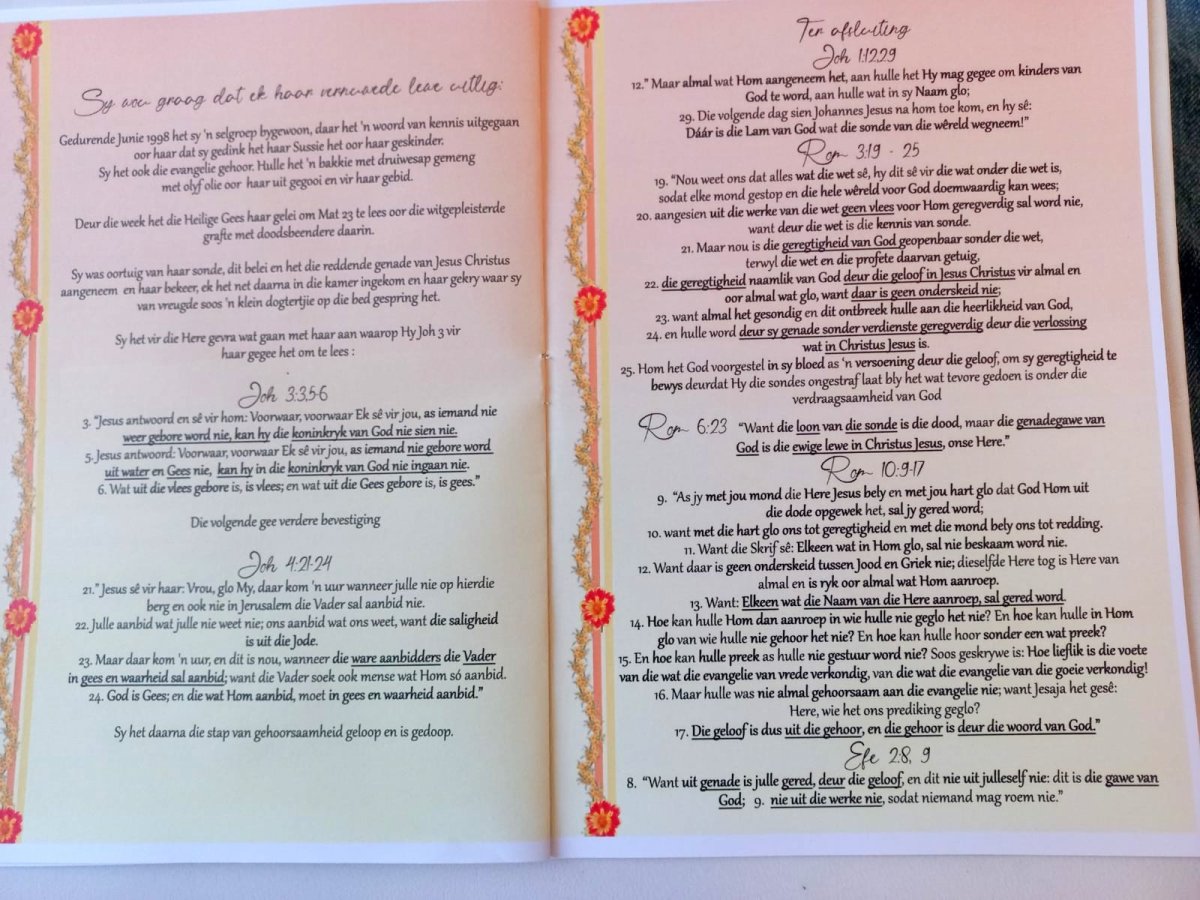 Sy wou graag dat ek haar vernuwde lewe uitlig:
Gedurende Junie 1998 het sy 'n selgroep bygewoon, daar het 'n woord van kennis uitgegaan
oor haar dat sy gedink het haar Sussie het oor haar geskinder.
Sy het ook die evangelie gehoor. Hulle het 'n bakkie met druiwesap gemeng
met olyf olie oor haar uit gegooi en vir haar gebid.
Deur die week het die Heilige Gees haar gelei om Mat 23 te lees oor die witgepleisterde
grafte met doodsbeendere daarin.
Sy was oortuig van haar sonde, dit belei en het die reddende genade van Jesus Christus
aangeneem en haar bekeer, ek het net daarna in die kamer ingekom en haar gekry waar sy
van vreugde soos 'n klein dogtertjie op die bed gespring het.
Sy het vir die Here gevra wat gaan met haar aan waarop Hy Joh 3 vir
haar gegee het om te lees :
Joh 3:3,5-6
3. "Jesus antwoord en sê vir hom: Voorwaar, voorwaar Ek sê vir jou, as iemand nie
weer gebore word nie, kan hy die koninkryk van God nie sien nie.
5. Jesus antwoord: Voorwaar, voorwaar Ek sê vir jou, as iemand nie gebore word
uit water en Gees nie, kan hy in die koninkryk van God nie ingaan nie.
6. Wat uit die vlees gebore is, is vlees; en wat uit die Gees gebore is, is gees."
Die volgende gee verdere bevestiging
Joh 4:21-24
21." Jesus sê vir haar: Vrou, glo My, daar kom 'n uur wanneer julle nie op hierdie
berg en ook nie in Jerusalem die Vader sal aanbid nie.
22. Julle aanbid wat julle nie weet nie; ons aanbid wat ons weet, want die saligheid
is uit die Jode.
23. Maar daar kom 'n uur, en dit is nou, wanneer die ware aanbidders die Vader
in gees en waarheid sal aanbid; want die Vader soek ook mense wat Hom só aanbid.
24. God is Gees; en die wat Hom aanbid, moet in gees en waarheid aanbid."
Sy het daarna die stap van gehoorsaamheid geloop en is gedoop.
Ter afsluiting
Joh 1:12,29
12." Maar almal wat Hom aangeneem het, aan hulle het Hy mag gegee om kinders van
God te word, aan hulle wat in sy Naam glo;
29. Die volgende dag sien Johannes Jesus na hom toe kom, en hy sê:
Dáár is die Lam van God wat die sonde van die wêreld wegneem!"
Rom 3:19 - 25
19. "Nou weet ons dat alles wat die wet sê, hy dit sê vir die wat onder die wet is,
sodat elke mond gestop en die hele wêreld voor God doemwaardig kan wees;
20. aangesien uit die werke van die wet geen vlees voor Hom geregverdig sal word nie,
want deur die wet is die kennis van sonde.
21. Maar nou is die geregtigheid van God geopenbaar sonder die wet,
terwyl die wet en die profete daarvan getuig,
22. die geregtigheid naamlik van God deur die geloof in Jesus Christus vir almal en
oor almal wat glo, want daar is geen onderskeid nie;
23. want almal het gesondig en dit ontbreek hulle aan die heerlikheid van God,
24. en hulle word deur sy genade sonder verdienste geregverdig deur die verlossing
wat in Christus Jesus is.
25. Hom het God voorgestel in sy bloed as 'n versoening deur die geloof, om sy geregtigheid te
bewys deurdat Hy die sondes ongestraf laat bly het wat tevore gedoen is onder die
verdraagsaamheid van God
Rom 6:23 "Want die loon van die sonde is die dood, maar die genadegawe van
God is die ewige lewe in Christus Jesus, onse Here."
Rom 10:9-17
9. "As jy met jou mond die Here Jesus bely en met jou hart glo dat God Hom uit
die dode opgewek het, sal jy gered word;
10. want met die hart glo ons tot geregtigheid en met die mond bely ons tot redding.
11. Want die Skrif sê: Elkeen wat in Hom glo, sal nie beskaam word nie.
12. Want daar is geen onderskeid tussen Jood en Griek nie; dieselfde Here tog is Here van
almal en is ryk oor almal wat Hom aanroep.
13. Want: Elkeen wat die Naam van die Here aanroep, sal gered word.
14. Hoe kan hulle Hom dan aanroep in wie hulle nie geglo het nie? En hoe kan hulle in Hom
glo van wie hulle nie gehoor het nie? En hoe kan hulle hoor sonder een wat preek?
15. En hoe kan hulle preek as hulle nie gestuur word nie? Soos geskrywe is: Hoe lieflik is die voete
van die wat die evangelie van vrede verkondig, van die wat die evangelie van die goeie verkondig!
16. Maar hulle was nie almal gehoorsaam aan die evangelie nie; want Jesaja het gesê:
Here, wie het ons prediking geglo?
17. Die geloof is dus uit die gehoor, en die gehoor is deur die woord van God."
Efe 2:8, 9
8. "Want uit genade is julle gered, deur die geloof, en dit nie uit julleself nie: dit is die gawe van
God; 9. nie uit die werke nie, sodat niemand mag roem nie."